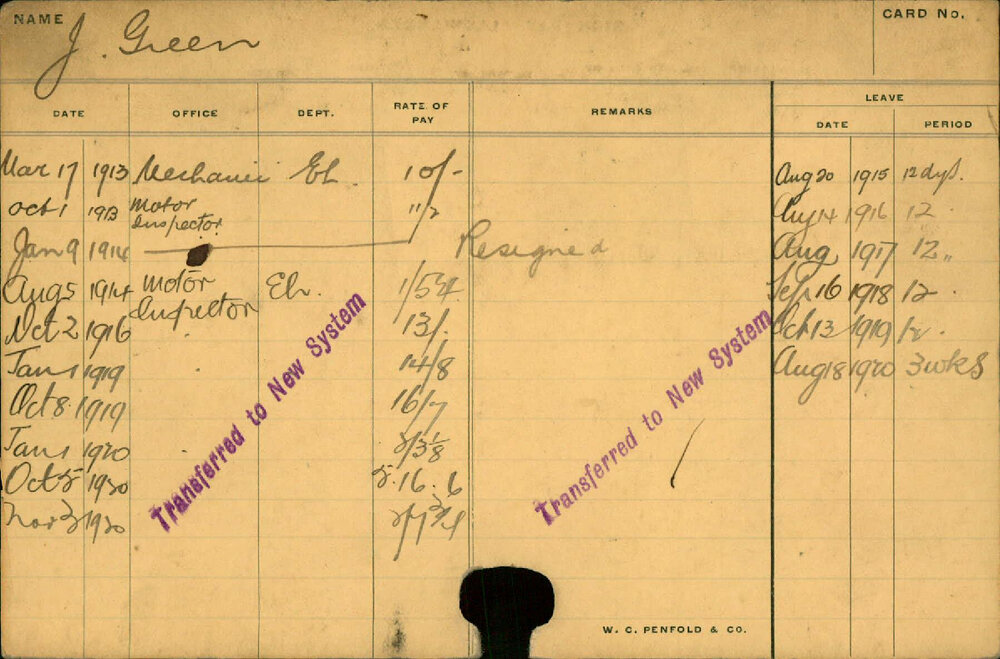 NAME J. Green CARD No.
LEAVE
DATE OFFICE DEPT. RATE OF PAY REMARKS DATE PERIOD
Mar 17 1913 Mechanic El. 10/- Aug 20 1915 12 dys.
Oct 1 1913 Motor Inspector 11/2 Aug 14 1916 12
Jan 9 1914 Resigned Aug 1917 12 "
Aug 5 1914 Motor Inspector El. Sep 16 1918 12
Oct 2 1916 13/. Oct 13 1919 12.
Jan 1 1919 14/8 Aug 18 1920 3 wks
Oct 8 1919 16/7
Jan 1 1920 2/3 1/8
Oct 1920 5.16.6
Nov 1920
Transferred to New System
Transferred to New System
W. C. PENFOLD & CO.